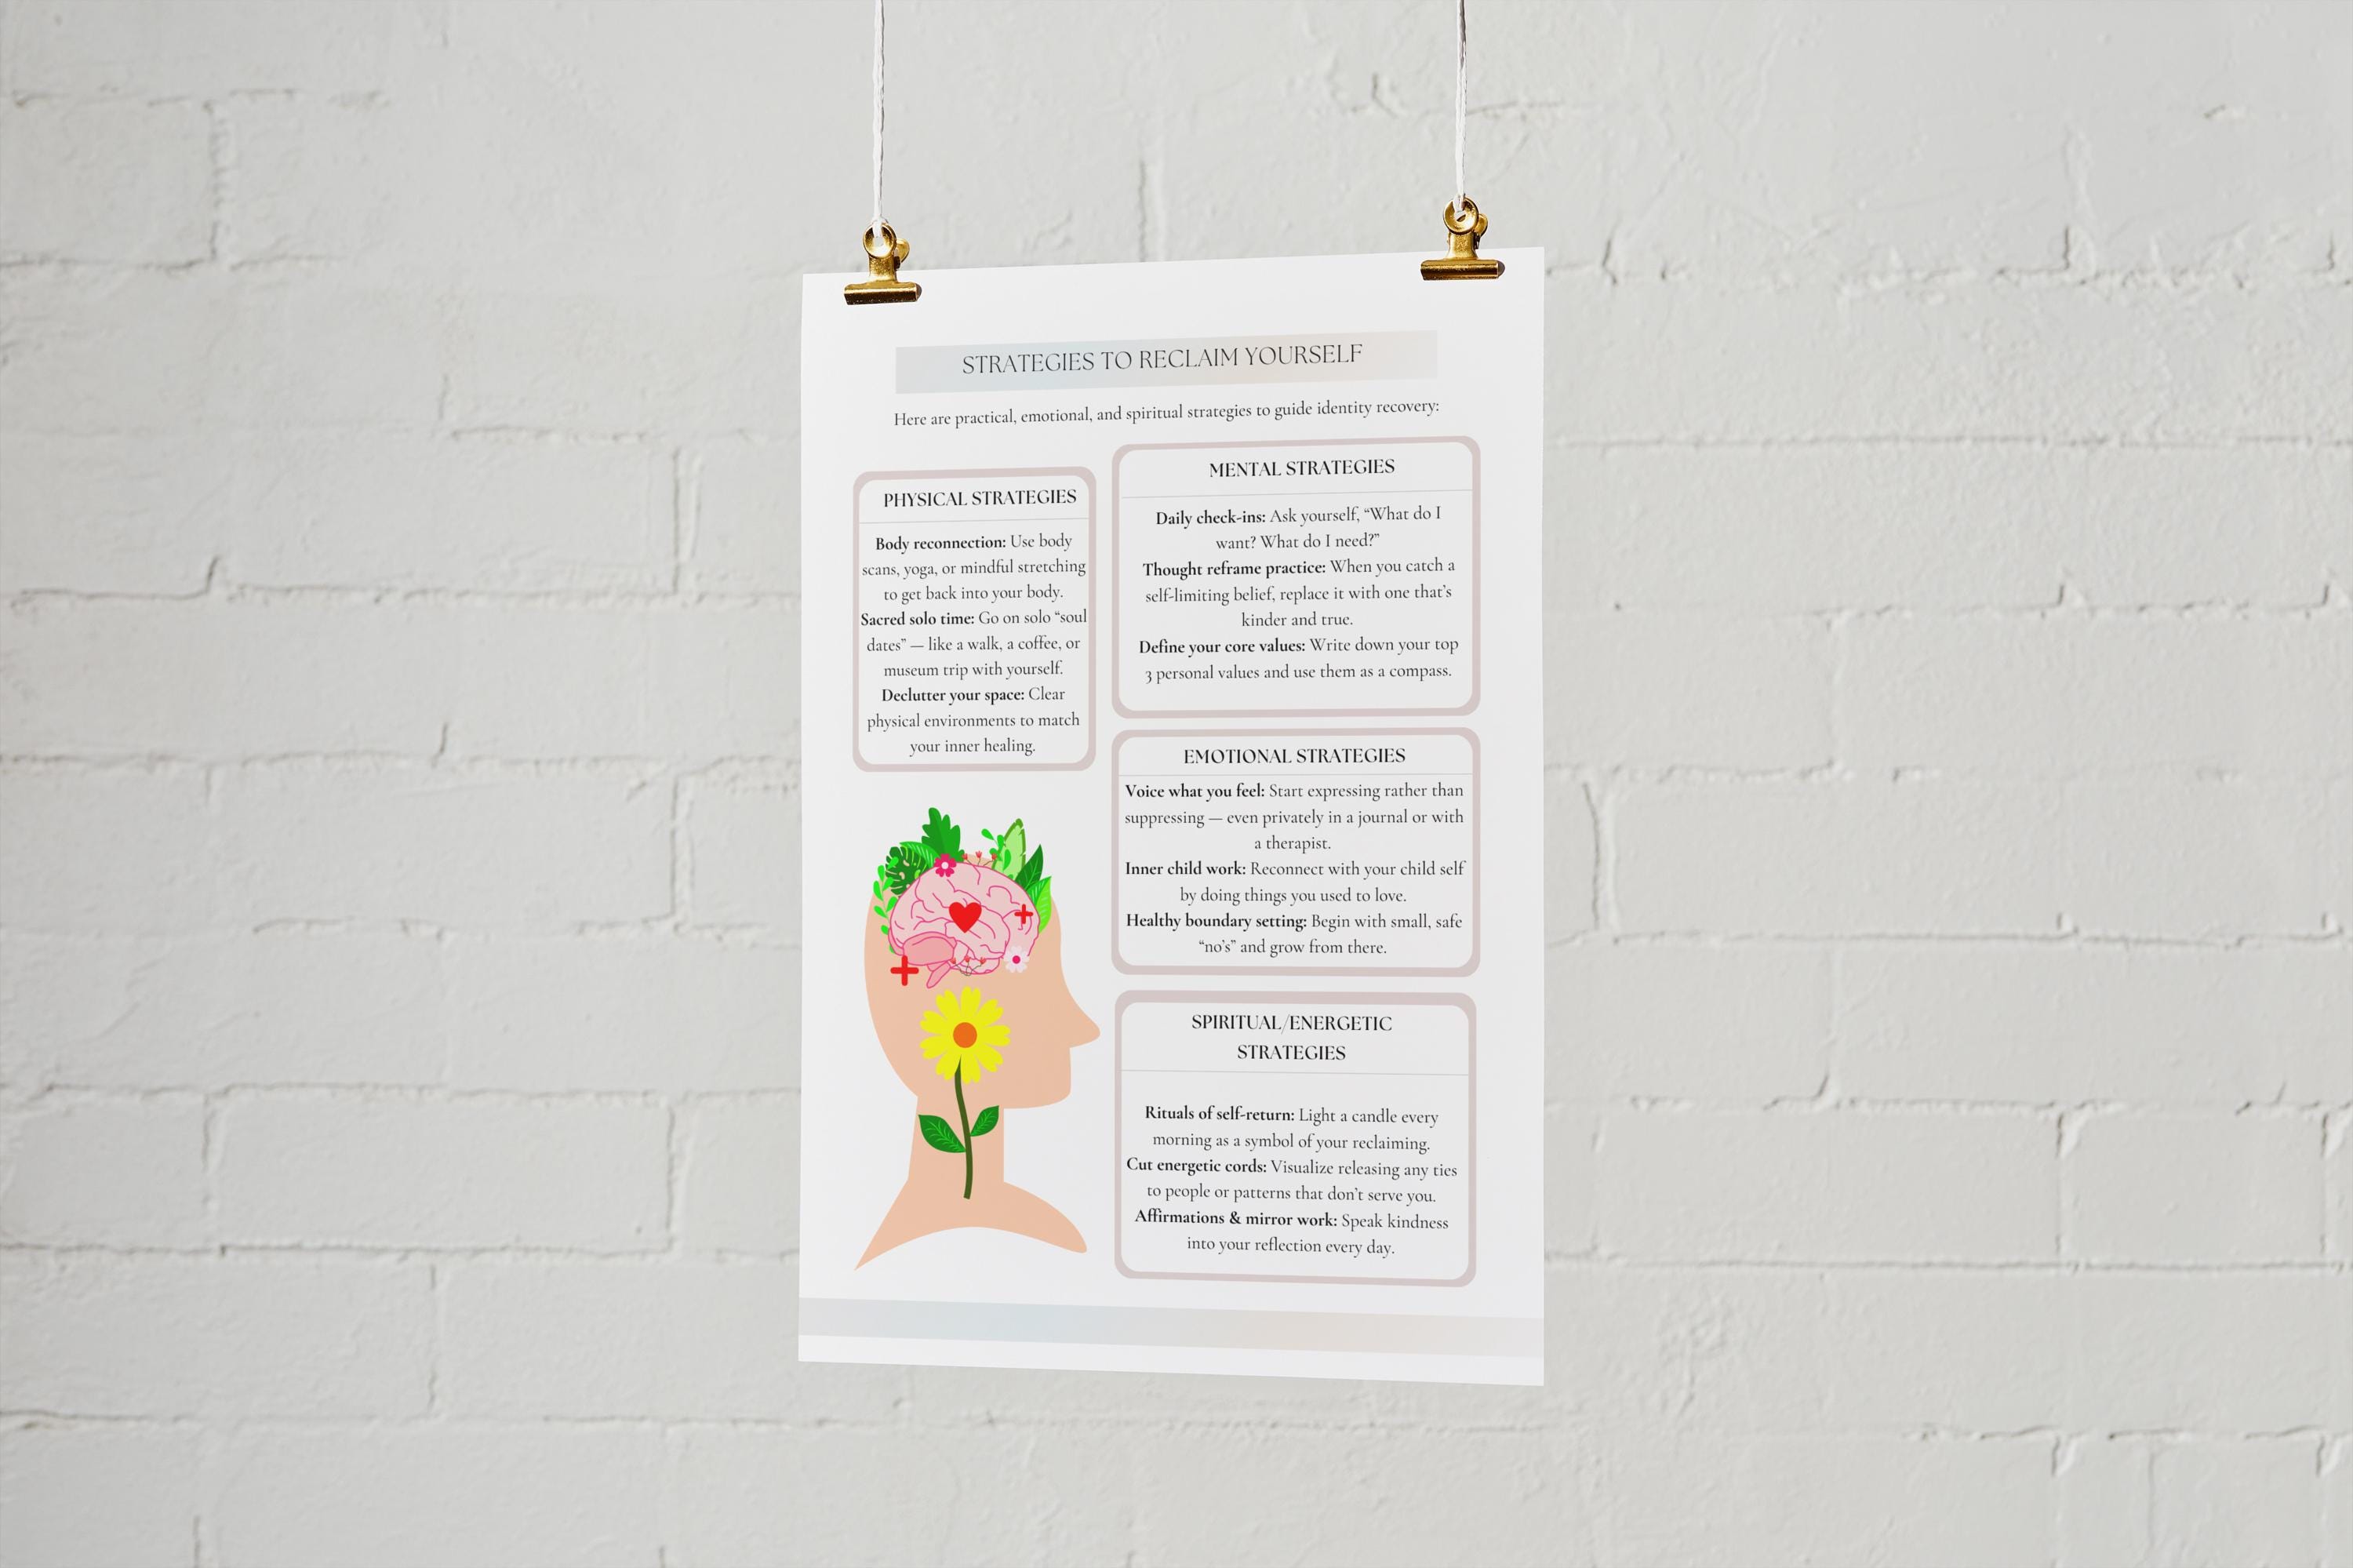 STRATEGIES TO RECLAIM YOURSELF
Here are practical, emotional, and spiritual strategies to guide identity recovery:
PHYSICAL STRATEGIES
Body reconnection: Use body
scans, yoga, or mindful stretching
to get back into your body.
Sacred solo time: Go on solo “soul
dates” — like a walk, a coffee, or
museum trip with yourself.
Declutter your space: Clear
physical environments to match
your inner healing.
MENTAL STRATEGIES
Daily check-ins: Ask yourself, “What do I
want? What do I need?”
Thought reframe practice: When you catch a
self-limiting belief, replace it with one that’s
kinder and true.
Define your core values: Write down your top
3 personal values and use them as a compass.
EMOTIONAL STRATEGIES
Voice what you feel: Start expressing rather than
suppressing — even privately in a journal or with
a therapist.
Inner child work: Reconnect with your child self
by doing things you used to love.
Healthy boundary setting: Begin with small, safe
“no’s” and grow from there.
SPIRITUAL/ENERGETIC
STRATEGIES
Rituals of self-return: Light a candle every
morning as a symbol of your reclaiming.
Cut energetic cords: Visualize releasing any ties
to people or patterns that don’t serve you.
Affirmations & mirror work: Speak kindness
into your reflection every day.